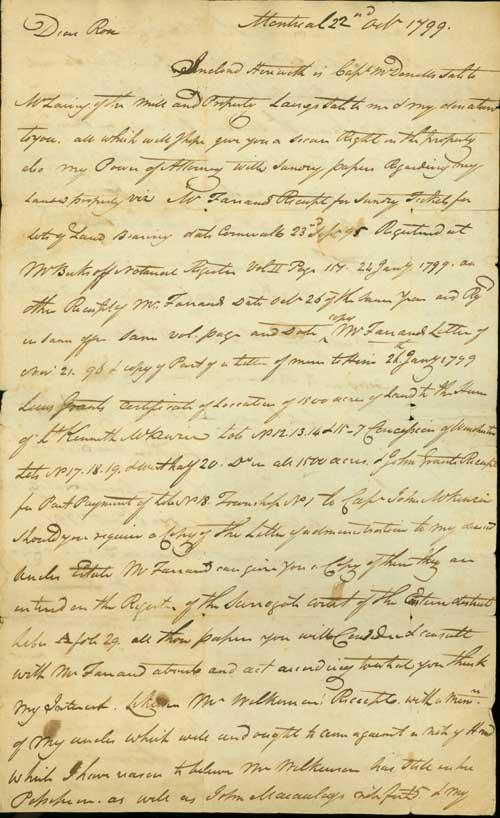 Dear Roa Montreal 22nd Octr 1799.
Inclosd Herewith is Capt McDonells Sale to
Mr Laing of the Mill and Property Laings Sale to me & my donation
to you. all which will I hope give you a secure Right in the property
also my Power of Attorney with Sundry papers Regarding my
Landed property viz Mr Farrand Receipt for Sundry Tickets for
lots of Land Bearing date Cornwall 23d Sept 98 Registered at
Mr Beeks off Notarial Register Vol II Page 24 Jany 1799. an
other Receipt of Mr Farrand Date Octr 26 of the Same Year and Rg
in Same offe Same vol. page and Date copy Mr Farrands Letter of
Nov 21. 98 & copy of Part of a letter of mine to Him 26th Jany 1799
Lewis Grants Certificate of Location of 1500 acres of Land to the Heirs
of Lt Kenneth McKenzie lots No 12.13.14 & 15-7 Concession of Winchester
lots No 17.18.19. & West half 20. Do in all 1500 acres. & John Grants Receipt
for Part Payment of lot No 18. Township No 1 to Capt John McKenzie
Should you require a Copy of the Letter of administration to my deceased
Uncles Estate Mr Farrand can give You a Copy of them they are
entered in the Register of the Surrogate Court of the Eastern district
Liber A folo 29. all those papers you will and consult
with Mr Farrand about and act according to what you think
My Interest. Likewise Mr Wilkinsons Receipts with a Memn.
of My uncles which will and ought to come against a note of Hand
which I have reason to believe Mr Wilkinson has still in his
Possession. as well as John Macaulays note for £5 & my